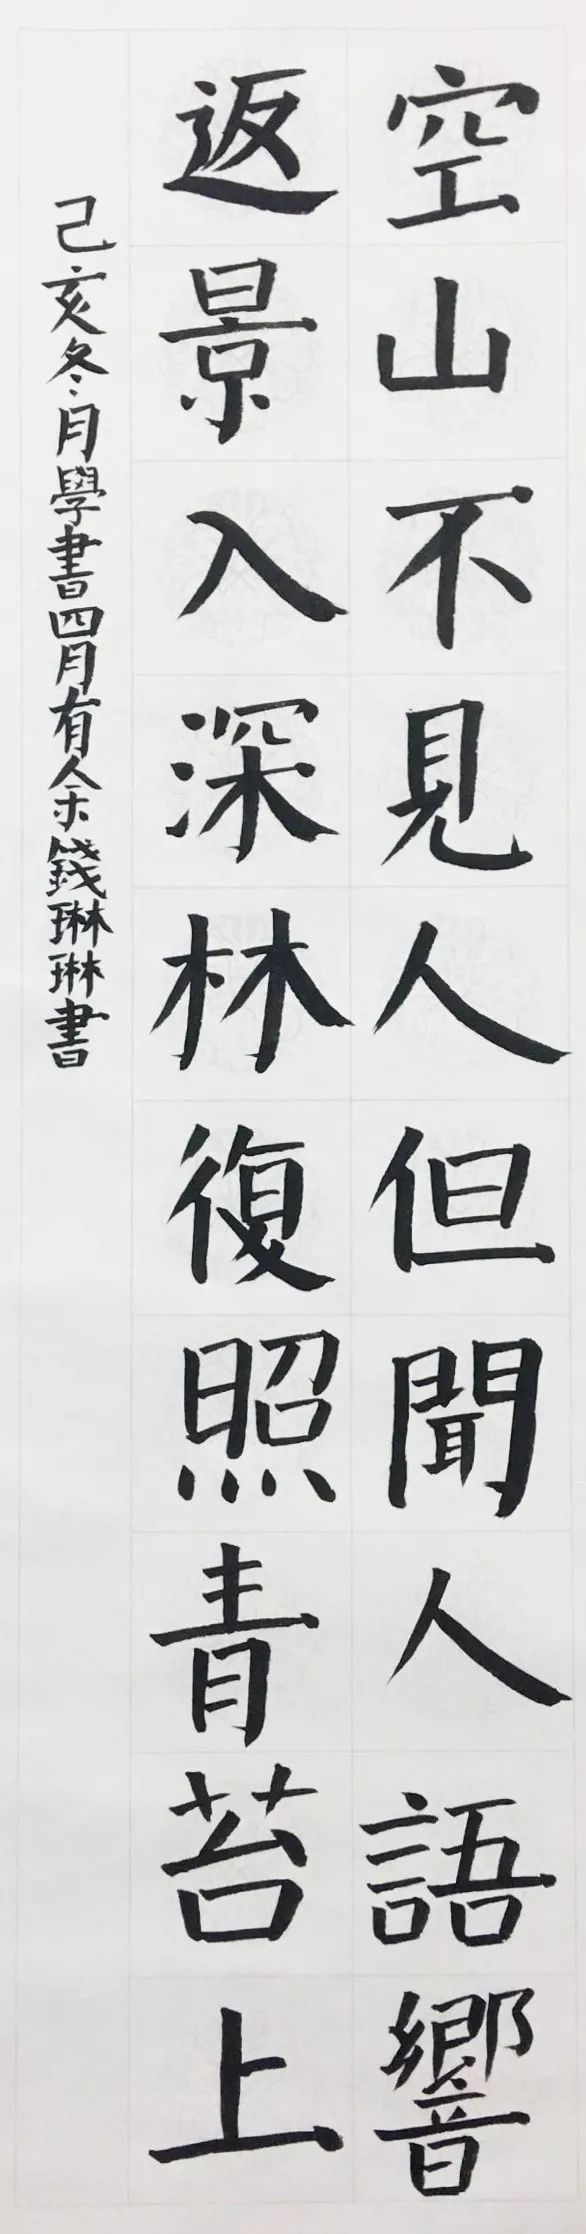 空山不見人但聞人語響
返景入深林復照青苔上
己亥冬月學書四月有余錢琳琳書